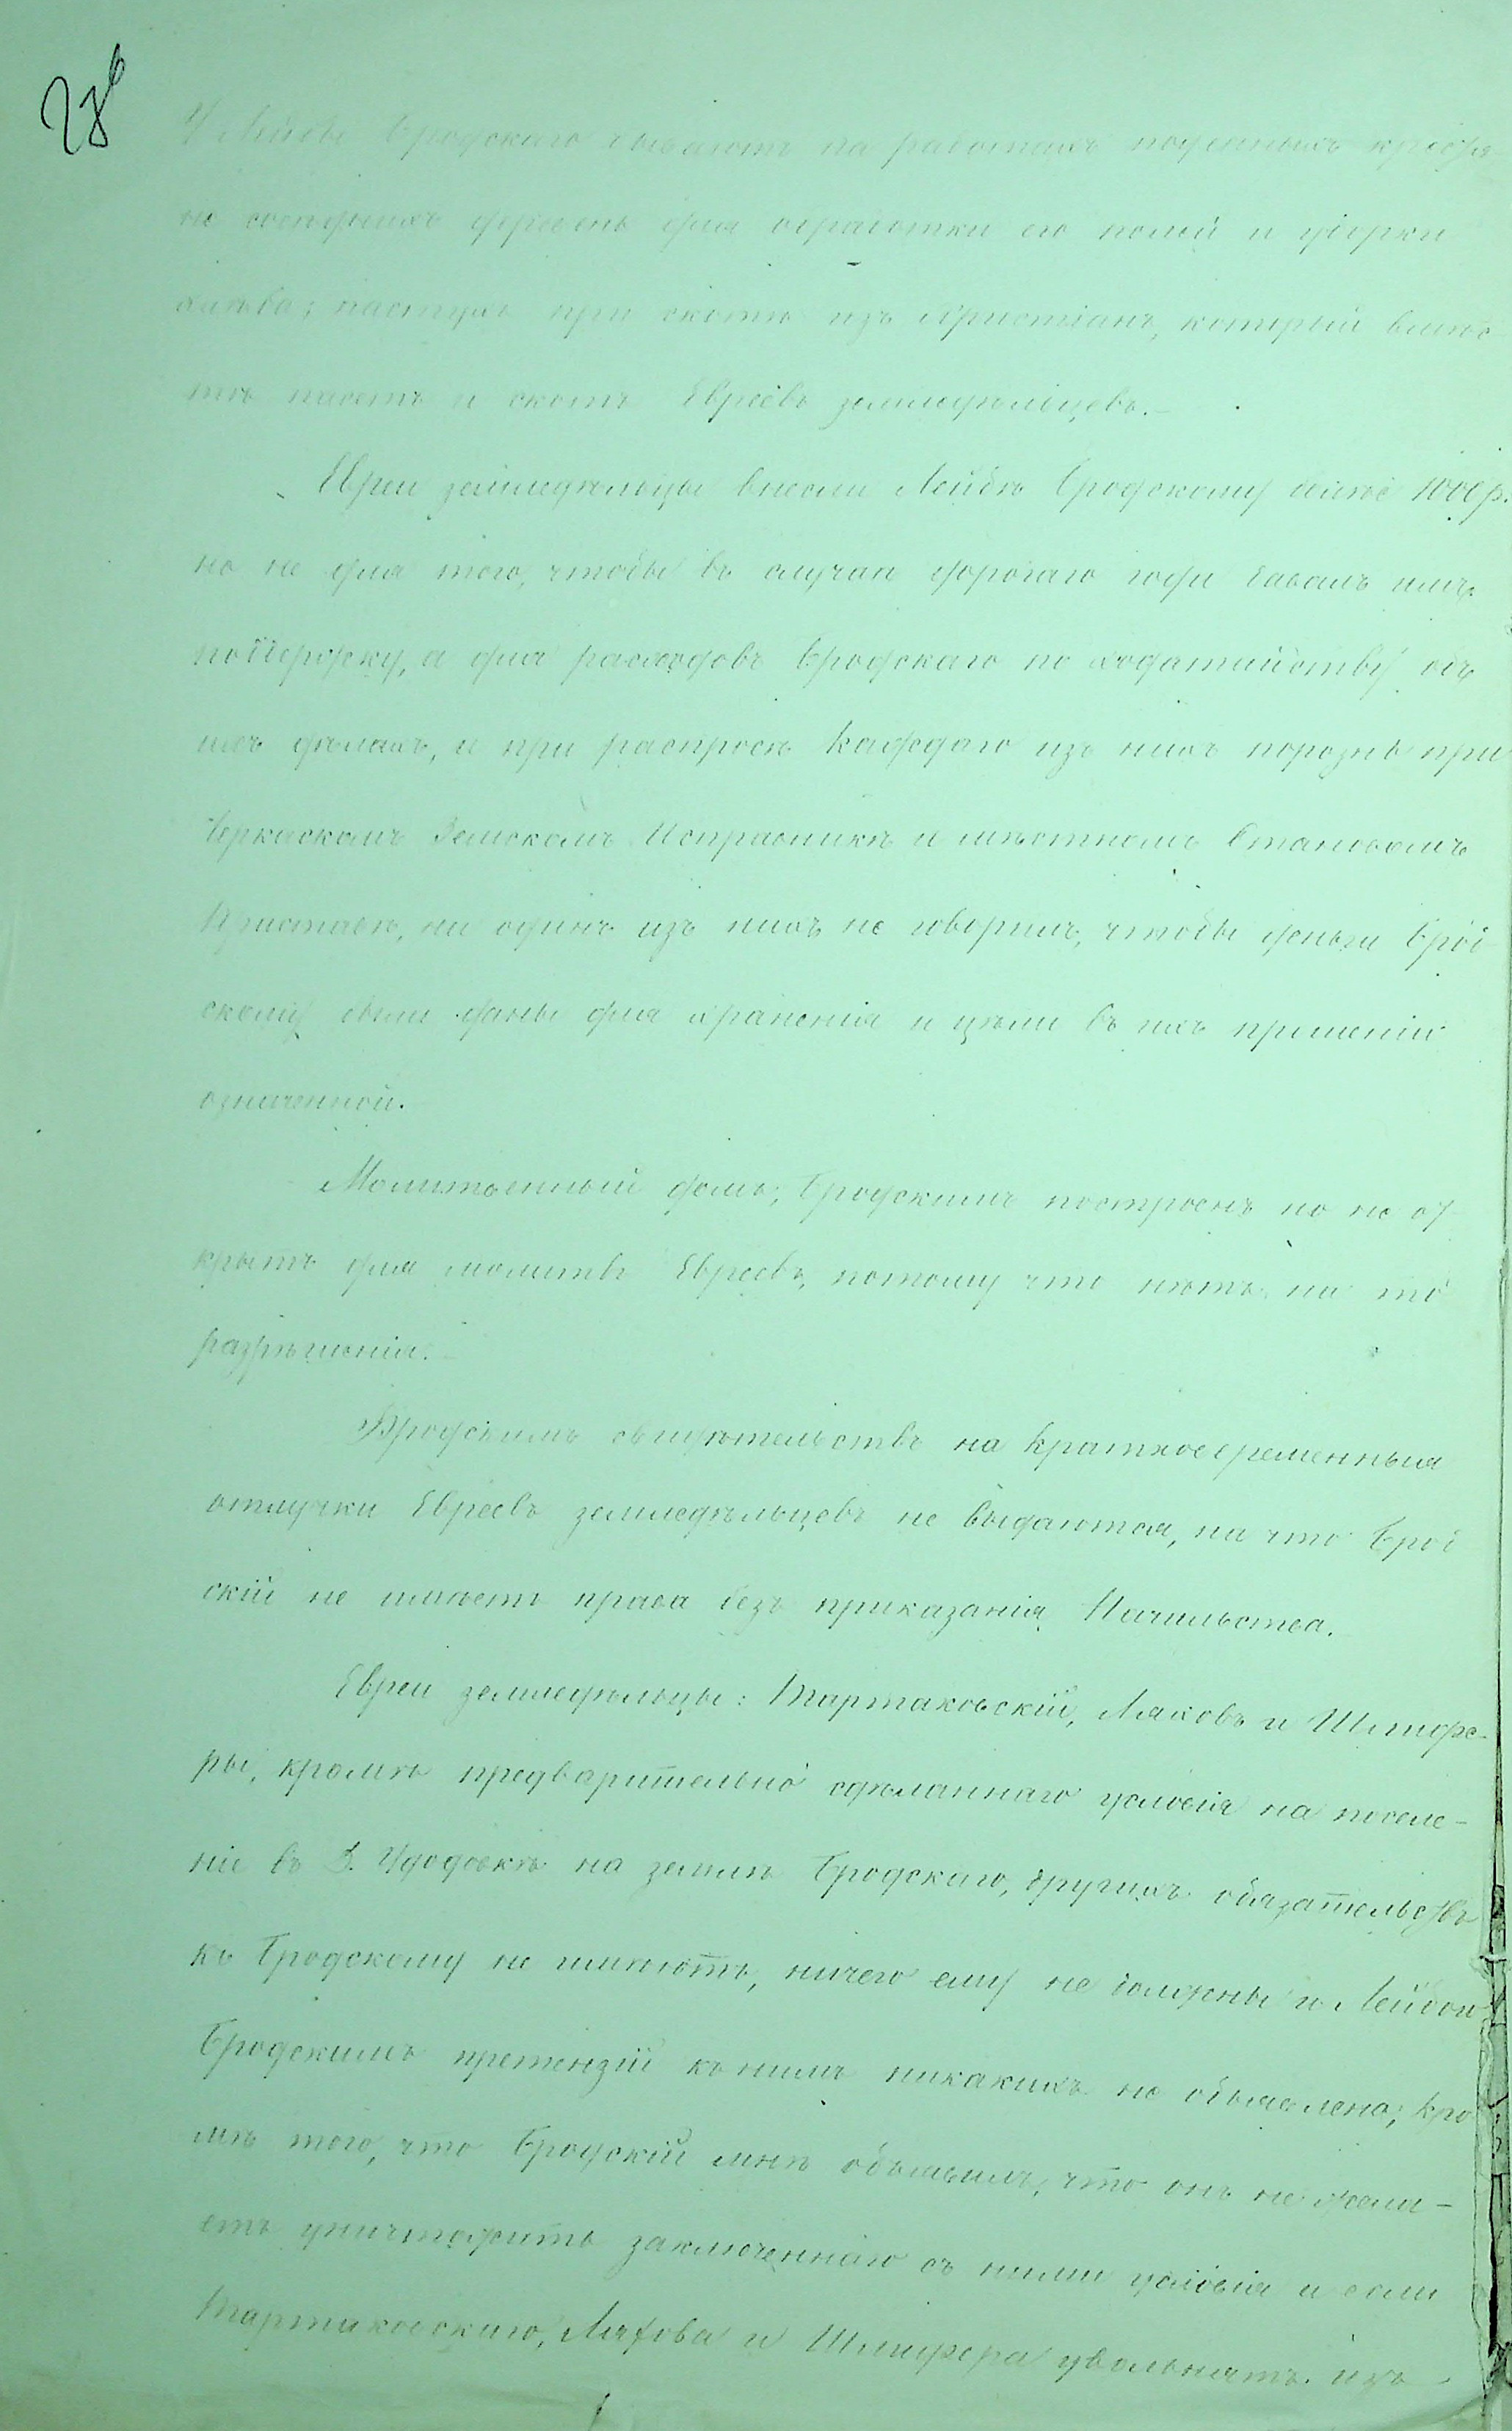 28 в
У Лейбы Бродскаго бываютъ на работахъ поденныхъ крестья-
не сосѣднихъ деревень для обработки его полей и уборки
хлѣба; пастухъ при скотѣ изъ Христіанъ, который вмѣс-
тѣ пасетъ и скотъ Евреевъ земледѣльцевъ.–
Евреи земледѣльцы внесли Лейбѣ Бродскому 1000 р.
но не для того, чтобы въ случаѣ дорогаго года давалъ имъ
поддержку, а для расходовъ Бродскаго по ходатайству объ
ихъ дѣлахъ, и при распросѣ каждаго изъ нихъ порознь при
Черкаскомъ Земскомъ Исправникѣ и мѣстномъ Становомъ
Приставѣ, ни одинъ изъ нихъ не говорилъ, чтобы деньги Брод-
скому были даны для храненія и цѣли въ ихъ прошеніи
означенной.
Молитвенный домъ, Бродскимъ построенъ но не от-
крытъ для молитвъ Евреевъ, потому что нѣтъ на то
разрѣшенія.–
Бродскимъ свидѣтельствъ на кратковременныя
отлучки Евреевъ земледѣльцевъ не выдаются, на что Брод-
скій не имѣетъ права безъ приказанія Начальства.
Евреи земледѣльцы: Тартаковскій, Ляховъ и Шлифе-
ры, кромѣ предварительно сдѣланнаго условія на поселе-
ніе въ Д. на землѣ Бродскаго, другихъ обязательствъ
къ Бродскому не имѣютъ, ничего ему не должны и Лейбою
Бродскимъ претензій къ нимъ никакихъ не объявлено; кро-
мѣ того, что Бродскій мнѣ объявилъ, что онъ не жела-
етъ уничтожить заключеннаго съ ними условія и если
Тартаковскаго, Ляхова и Шлифера увольнятъ изъ